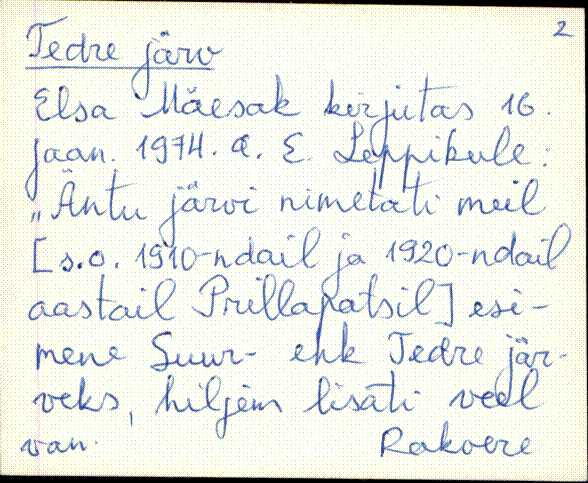 2
Tedre järv
Elsa Mäesak kirjutas 16.
jaan. 1974. a. E. Leppikule:
„Äntu järvi nimetati meil
[s.o. 1910-ndail ja 1920-ndail
aastail Prillapatsil] esi-
mene Suur- ehk Tedre jär-
veks, hiljem lisati veel
van. Rakvere